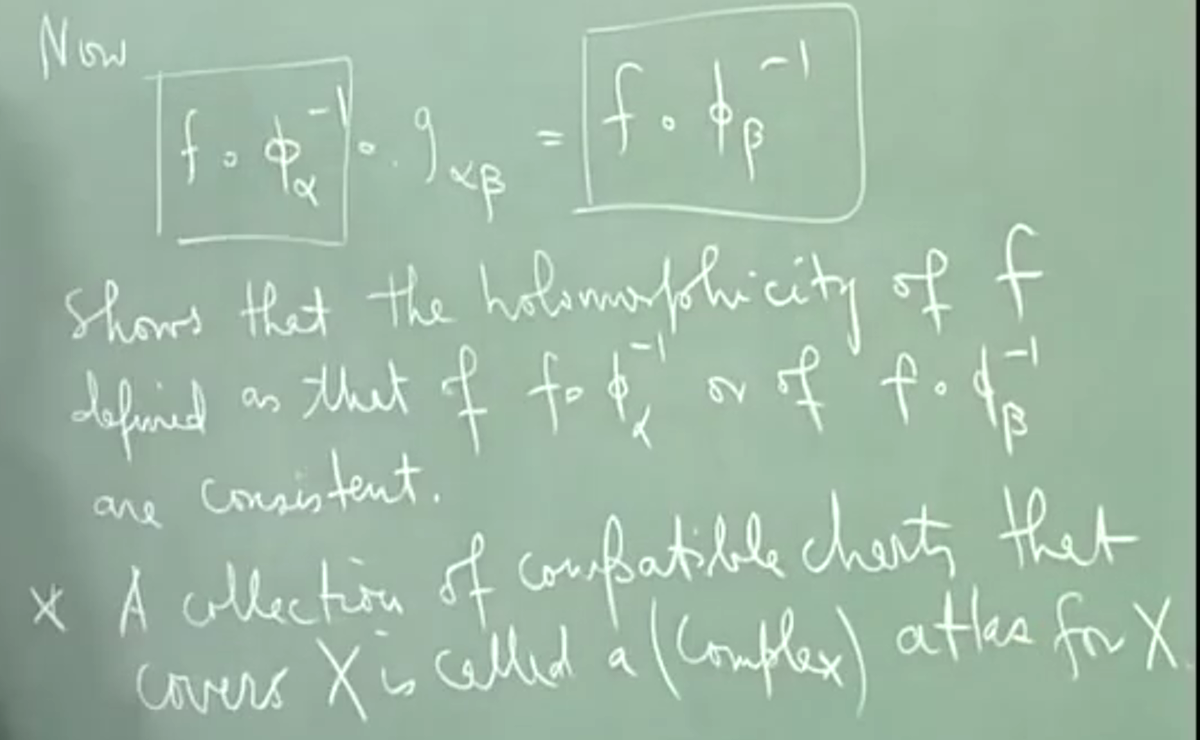 Now
f ∘ φ_α^{-1} ∘ g_{αβ} = f ∘ φ_β^{-1}
shows that the holomorphicity of f
defined as that of f∘φ_α^{-1} or of f∘φ_β^{-1}
are consistent.
* A collection of compatible charts that
covers X is called a (complex) atlas for X.